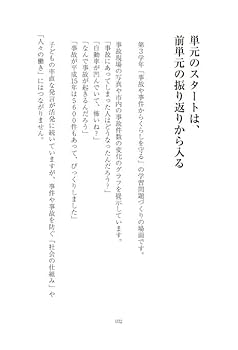 単元のスタートは、
前単元の振り返りから入る
第3学年「事故や事件からくらしを守る」の学習問題づくりの場面です。
事故現場の写真や市内の事故件数の変化のグラフを提示しています。
「事故にあってしまった人はどうなったんだろう?」
「自動車が凹んでいて、怖いね?」
「なんで事故が起きるんだろう」
「事故が平成15年は5600件もあって、びっくりしました」
子どもの率直な発言が活発に続いていますが、事件や事故を防ぐ「社会の仕組み」や
「人々の働き」にはつながりません。